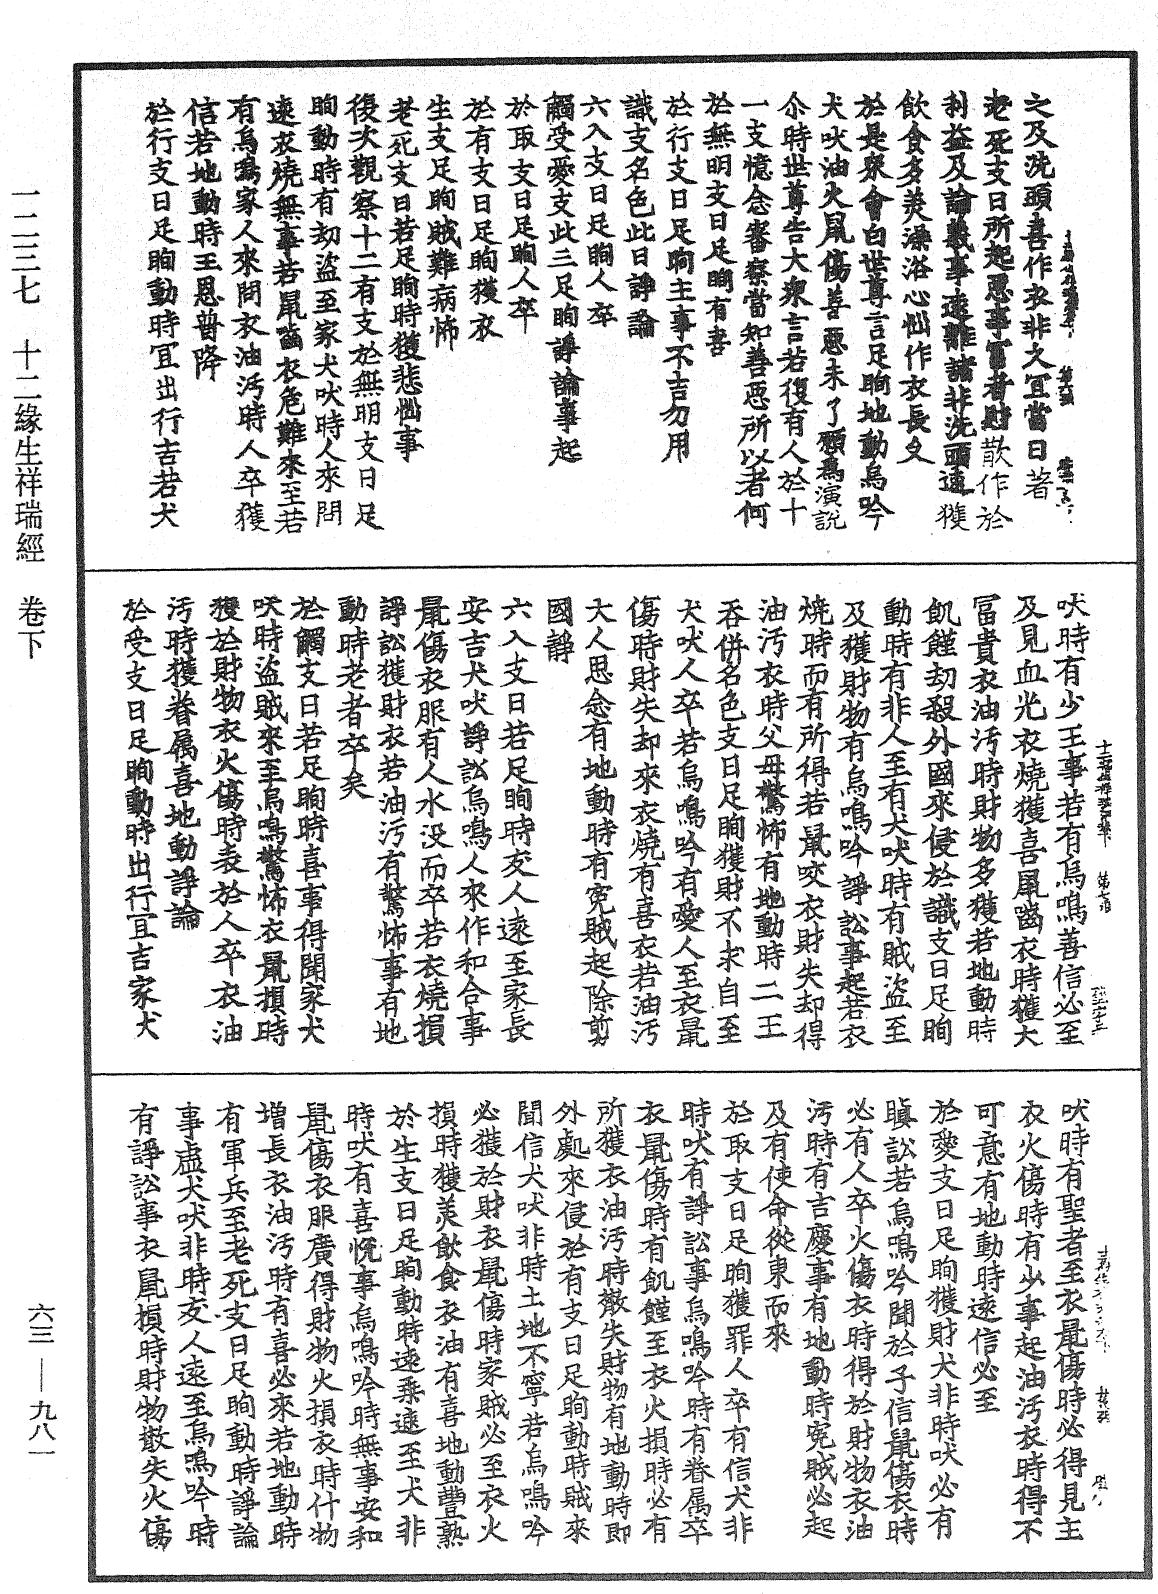 一二三七　十二緣生祥瑞經　卷下
六三—九八一
之及洗頭喜作衣非久冝當日著
老死支日所起惡事冨者財散作於
利益及論義事遠離諸非洗頭遠獲
飲食多美澡浴心怮作衣長久
於是衆會白世尊言足眴地動烏吟
犬吠油火鼠傷善惡未了願爲演説
尒時世尊告大衆言若復有人於十
一支憶念審察當知善惡所以者何
於無明支日足眴有喜
於行支日足眴主事不吉勿用
識支名色此日諍論
六入支日足眴人卒
觸受愛支此三足眴諍論事起
於取支日足眴人卒
於有支日足眴獲衣
生支足眴賊難病怖
老死支日若足眴時獲悲怮事
復次觀察十二有支於無明支日足
眴動時有刼盜至家犬吠時人來問
速衣燒無事若鼠齒衣危難來至若
有烏鳴家人來問衣油汚時人卒獲
信若地動時王恩普降
於行支日足眴動時冝出行吉若犬
吠時有少王事若有烏鳴善信必至
及見血光衣燒獲喜鼠齒衣時獲大
冨貴衣油汚時財物多獲若地動時
飢饉刼殺外國來侵於識支日足眴
動時有非人至有犬吠時有賊盜至
及獲財物有烏鳴吟諍訟事起若衣
燒時而有所得若鼠咬衣財失却得
油汚衣時父母驚怖有地動時二王
吞併名色支日足眴獲財不求自至
犬吠人卒若烏鳴吟有愛人至衣鼠
傷時財失却來衣燒有喜衣若油汚
大人思念有地動時有寃賊起除剪
國諍
六入支日若足眴時友人速至家長
安吉犬吠諍訟烏鳴人來作和合事
鼠傷衣服有人水没而卒若衣燒損
諍訟獲財衣若油汚有驚怖事有地
動時老者卒矣
於觸支日若足眴時喜事得聞家犬
吠時盜賊來至烏鳴驚怖衣鼠損時
獲於財物衣火傷時表於人卒衣油
汚時獲眷属喜地動諍論
於受支日足眴動時出行冝吉家犬
吠時有聖者至衣鼠傷時必得見主
衣火傷時有少事起油汚衣時得不
可意有地動時遠信必至
於愛支日足眴獲財犬非時吠必有
瞋訟若烏鳴吟聞於子信鼠傷衣時
必有人卒火傷衣時得於財物衣油
汚時有吉慶事有地動時寃賊必起
及有使命從東而來
於取支日足眴獲罪人卒有信犬非
時吠有諍訟事烏鳴吟時有眷属卒
衣鼠傷時有飢饉至衣火損時必有
所獲衣油汚時散失財物有地動時即
外處來侵於有支日足眴動時賊來
聞信犬吠非時土地不寧若烏鳴吟
必獲於財衣鼠傷時家賊必至衣火
損時獲美飲食衣油有喜地動豐熟
於生支日足眴動時速乘遠至犬非
時吠有喜悅事烏鳴吟時無事安和
鼠傷衣服廣得財物火損衣時什物
增長衣油汚時有喜必來若地動時
有軍兵至老死支日足眴動時諍論
事虛犬吠非時友人速至烏鳴吟時
有諍訟事衣鼠損時財物散失火傷